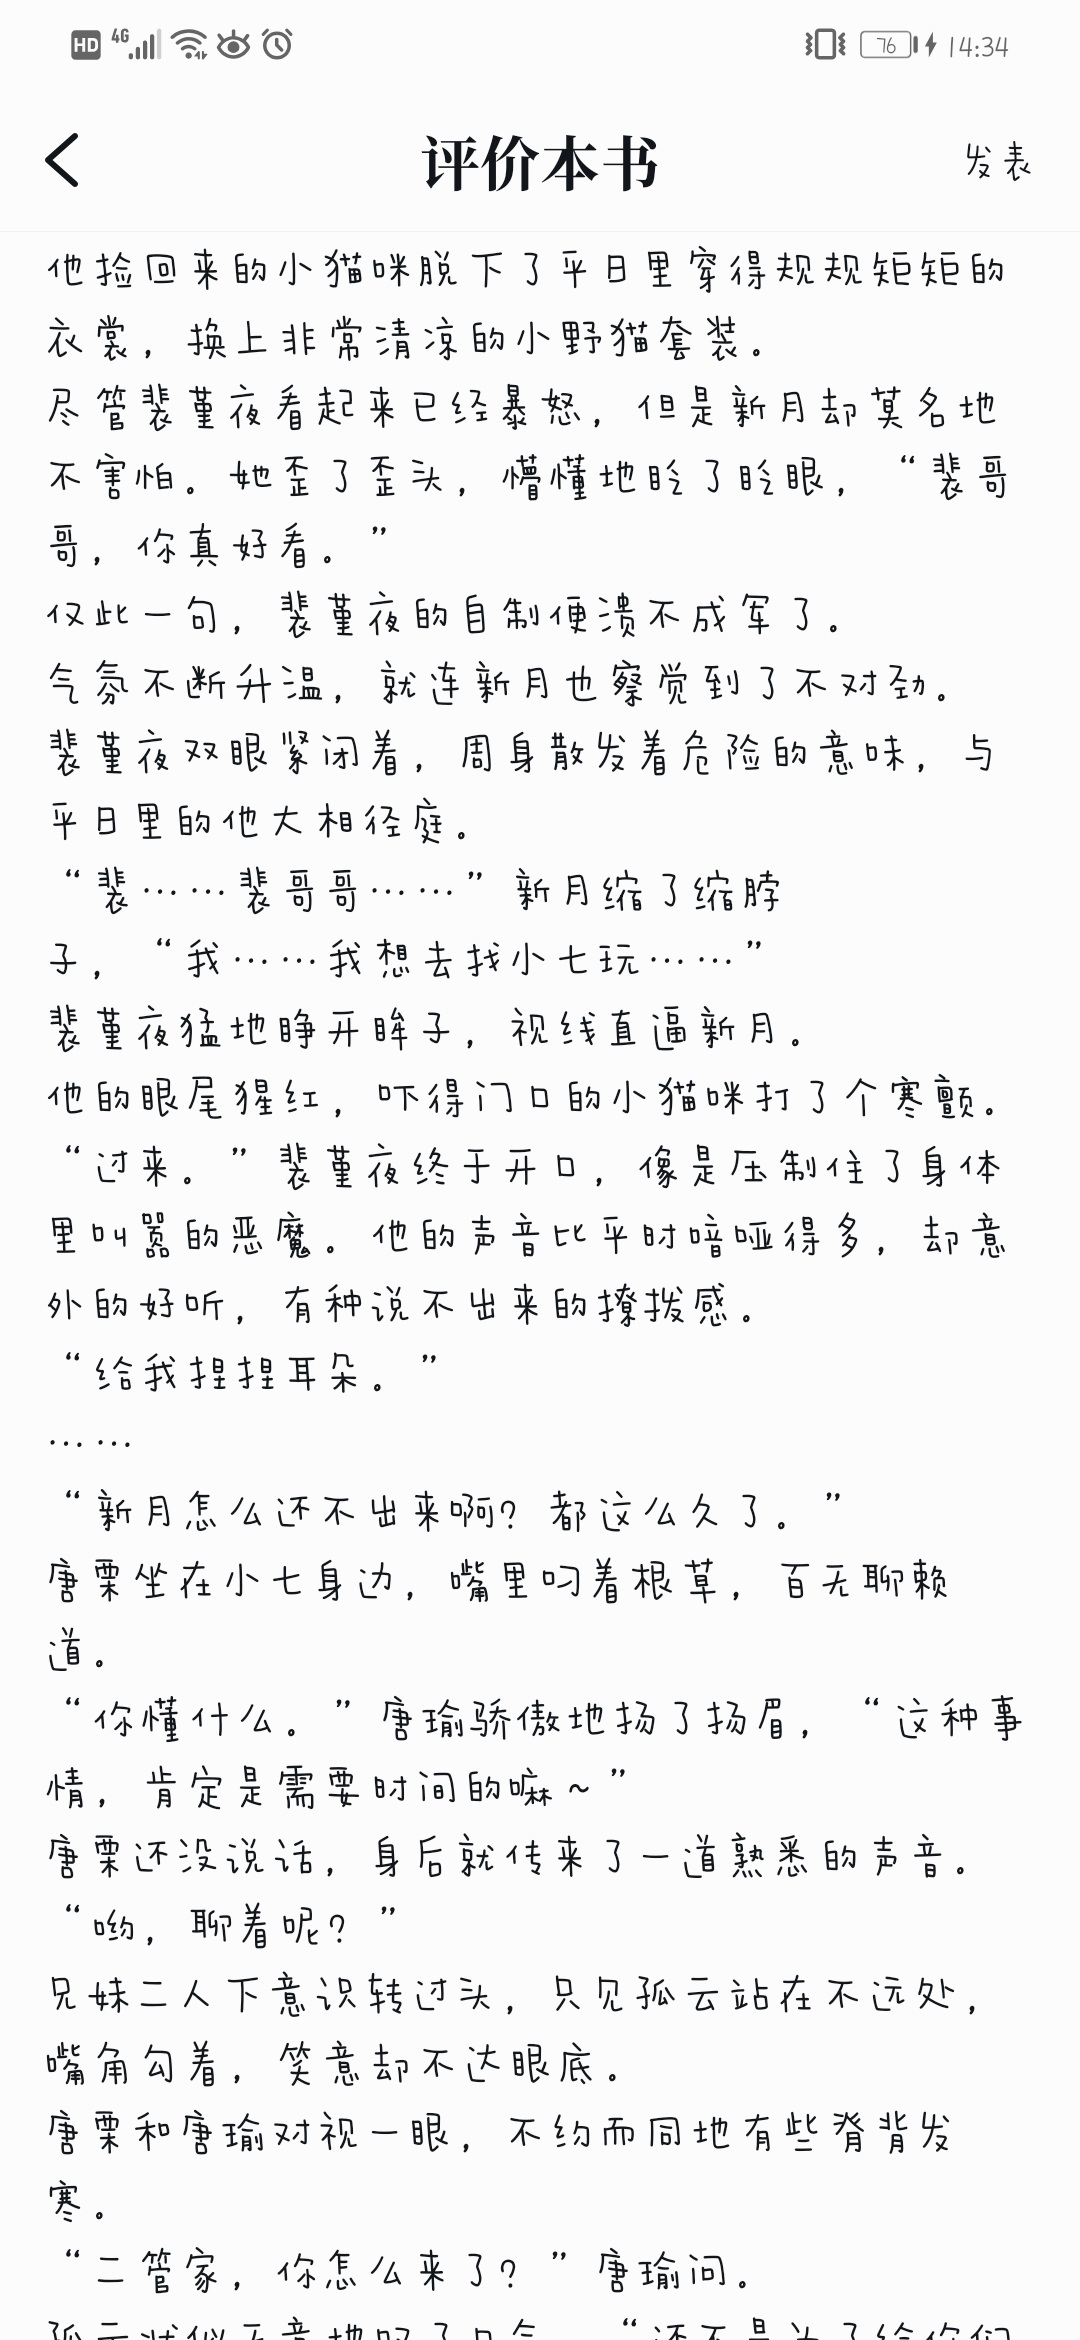 HD 4G 76 14:34
评价本书 发表
他捡回来的小猫咪脱下了平日里穿得规规矩矩的
衣裳，换上非常清凉的小野猫套装。
尽管裴堇夜看起来已经暴怒，但是新月却莫名地
不害怕。她歪了歪头，懵懂地眨了眨眼，“裴哥
哥，你真好看。”
仅此一句，裴堇夜的自制便溃不成军了。
气氛不断升温，就连新月也察觉到了不对劲。
裴堇夜双眼紧闭着，周身散发着危险的意味，与
平日里的他大相径庭。
“裴……裴哥哥……”新月缩了缩脖
子，“我……我想去找小七玩……”
裴堇夜猛地睁开眸子，视线直逼新月。
他的眼尾猩红，吓得门口的小猫咪打了个寒颤。
“过来。”裴堇夜终于开口，像是压制住了身体
里叫嚣的恶魔。他的声音比平时喑哑得多，却意
外的好听，有种说不出来的撩拨感。
“给我捏捏耳朵。”
……
“新月怎么还不出来啊？都这么久了。”
唐栗坐在小七身边，嘴里叼着根草，百无聊赖
道。
“你懂什么。”唐瑜骄傲地扬了扬眉，“这种事
情，肯定是需要时间的嘛~”
唐栗还没说话，身后就传来了一道熟悉的声音。
“哟，聊着呢？”
兄妹二人下意识转过头，只见孤云站在不远处，
嘴角勾着，笑意却不达眼底。
唐栗和唐瑜对视一眼，不约而同地有些脊背发
寒。
“二管家，你怎么来了？”唐瑜问。
孤云状似无意地叹了口气，“还不是为了给你们